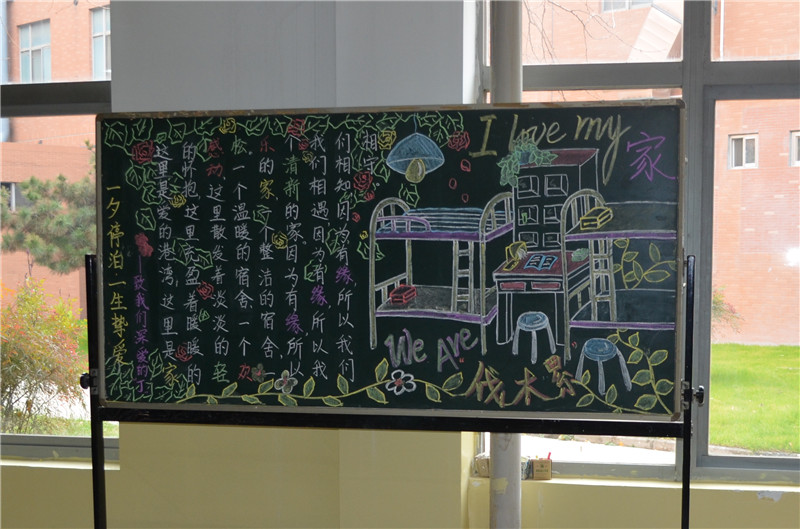 I love my 家
这里是爱的港湾,这里是家
的怀抱,这里充盈着暖暖的
感动,这里散发着淡淡的
一个温暖的宿舍,一个欢
乐的家,一个整洁的宿舍,一
个清新的家因为有缘,所以
我们相遇因为有缘,所以我
们相知因为有缘,所以我们
相守
一夕停泊一生挚爱
致我们深爱的
We Are 伐木累